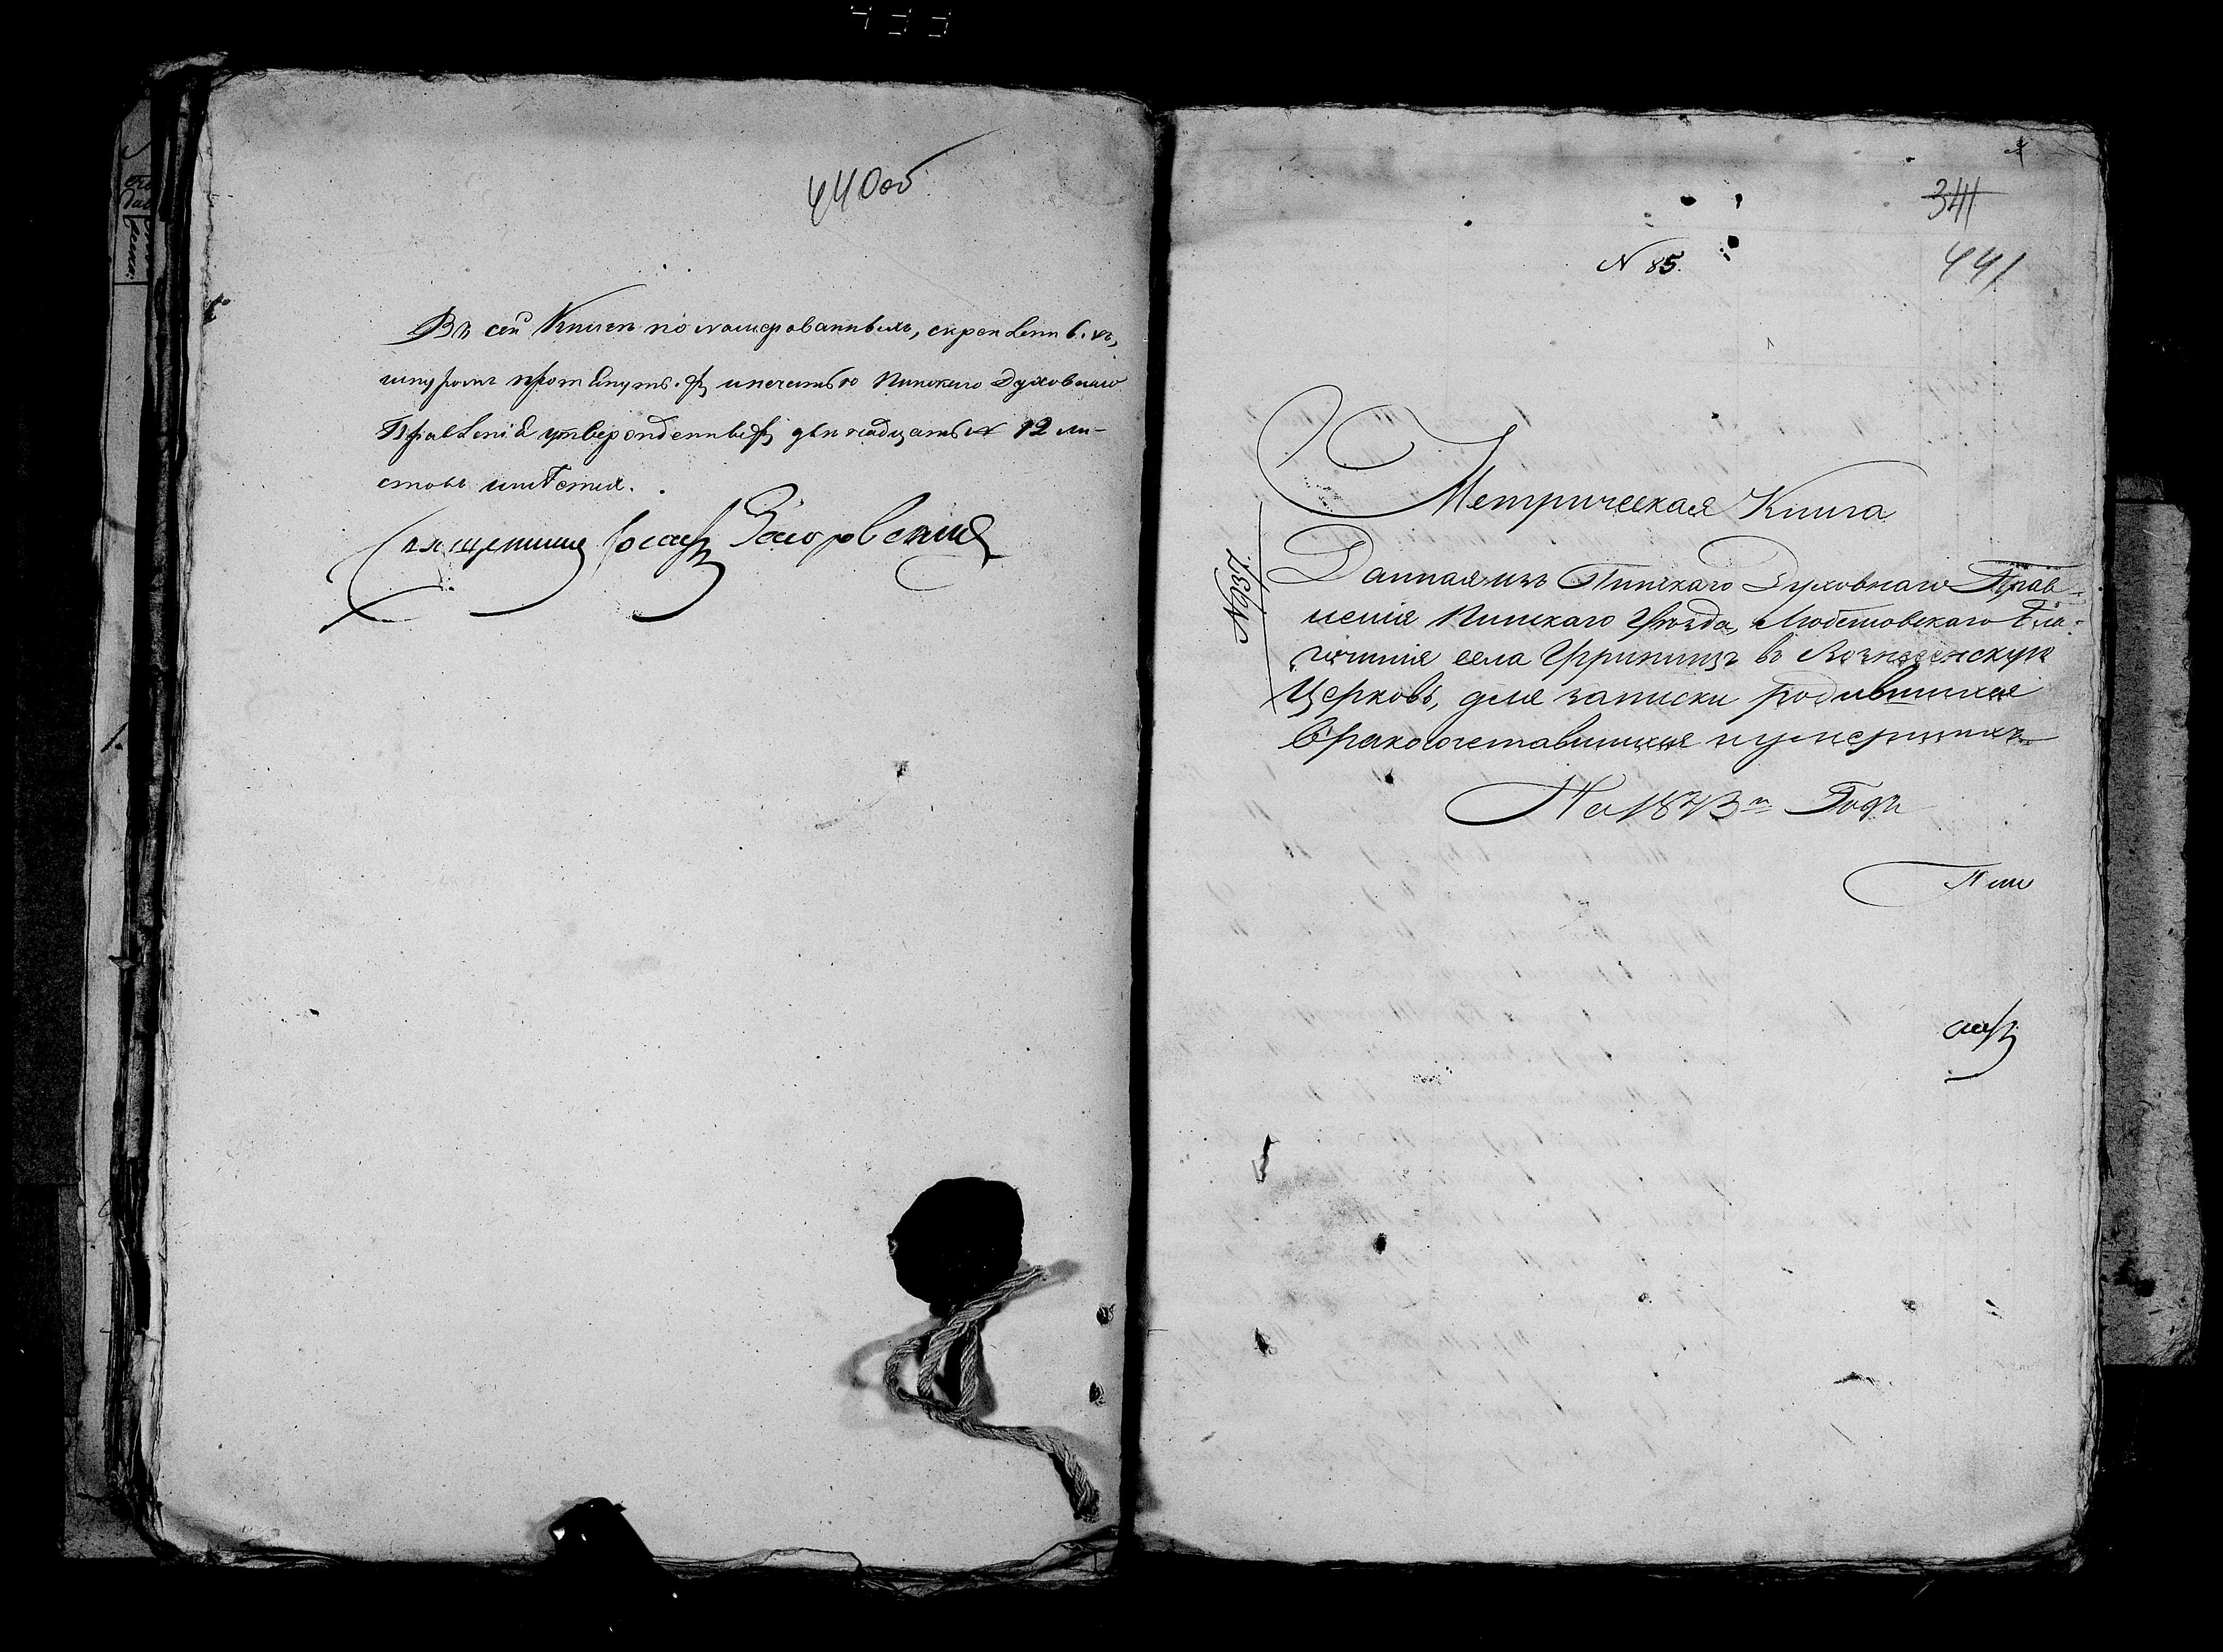 440об
Въ сей Книгѣ пономерованныхъ, скрепленныхъ,
шнуромъ протянутыхъ и печатью Пинскаго Духовнаго
Правленія утвержденныхъ двѣнадцать № 12 ли-
стовъ имѣется.
Священникъ Іосифъ
341
N 85.
441
Метрическая Книга
Данная изъ Пинскаго Духовнаго Прав-
ленія Пинскаго Уѣзда, Любешовскаго Бла-
гочинія села Угриничъ въ Вознесенскую
Церковь, для записки родившихся
бракосочетавшихся и умершихъ
На 1843й Годъ